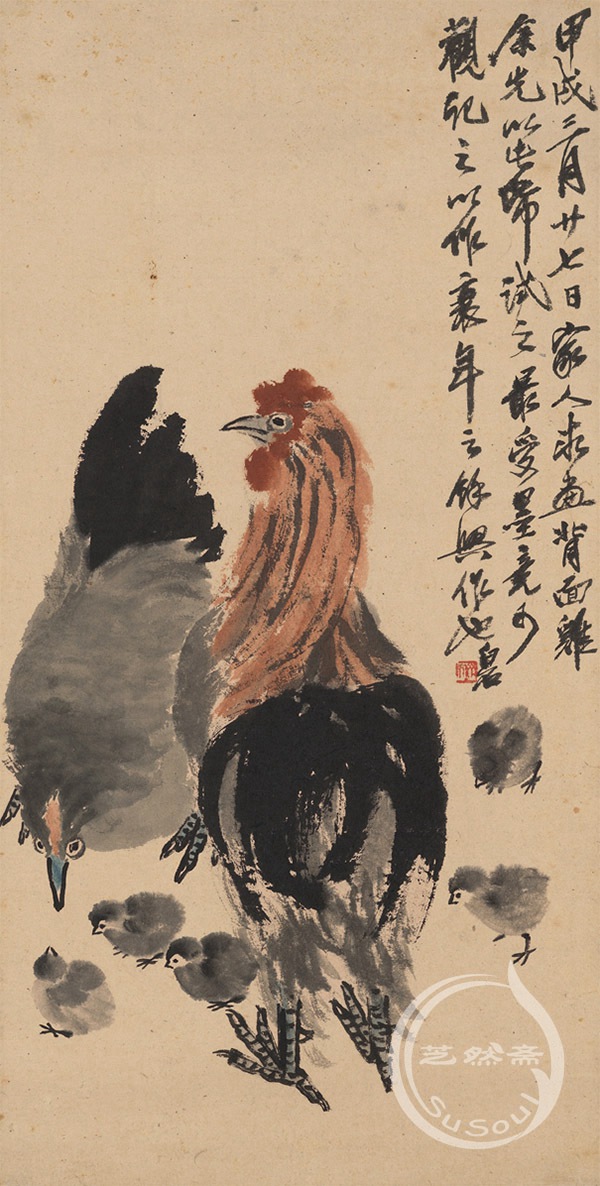 甲戌三月廿七日家人求畫背面雞
余先以此幀試之最愛墨竟可
觀記之以作衰年之餘興作也白石
芝然斋
SuSoul